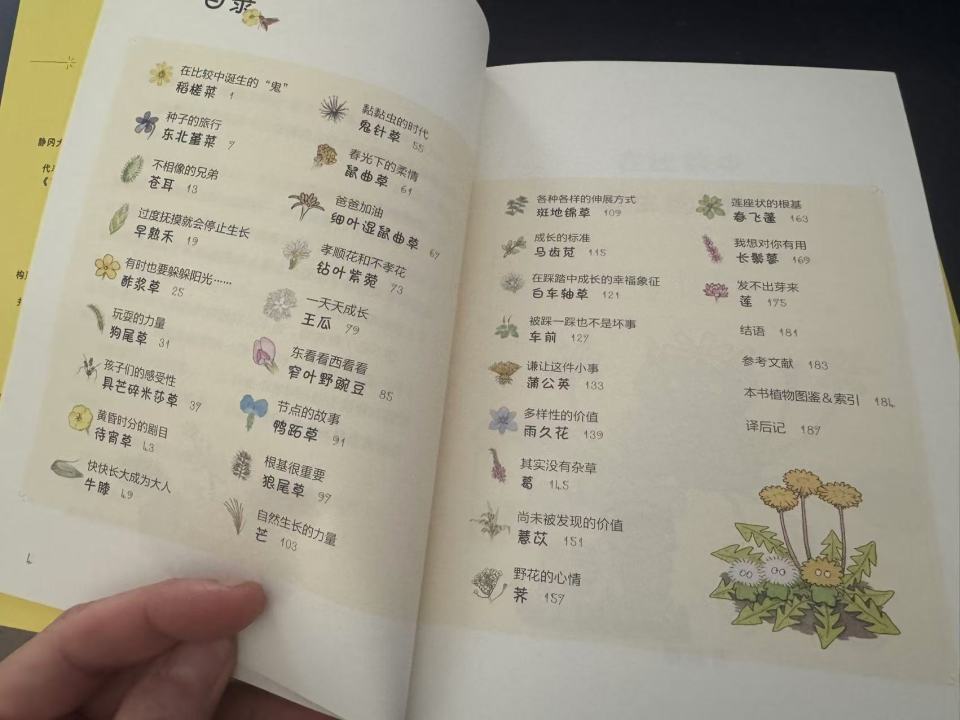 目录
在比较中诞生的“鬼”
稻槎菜 1
种子的旅行
东北堇菜 7
不相像的兄弟
苍耳 13
过度抚摸就会停止生长
早熟禾 19
有时也要躲躲阳光……
酢浆草 25
玩耍的力量
狗尾草 31
孩子们的感受性
具芒碎米莎草 37
黄昏时分的剧目
待宵草 43
快快长大成为大人
牛膝 49
黏黏虫的时代
鬼针草 55
春光下的柔情
鼠曲草 61
爸爸加油
细叶湿鼠曲草 67
孝顺花和不孝花
钻叶紫菀 73
一天天成长
王瓜 79
东看看西看看
窄叶野豌豆 85
节点的故事
鸭跖草 91
根基很重要
狼尾草 97
自然生长的力量
芒 103
4
各种各样的伸展方式
斑地锦草 109
成长的标准
马齿苋 115
在踩踏中成长的幸福象征
白车轴草 121
被踩一踩也不是坏事
车前 127
谦让这件小事
蒲公英 133
多样性的价值
雨久花 139
其实没有杂草
葛 145
尚未被发现的价值
薏苡 151
野花的心情
荠 157
莲座状的根基
春飞蓬 163
我想对你有用
长鬃蓼 169
发不出芽来
莲 175
结语 181
参考文献 183
本书植物图鉴&索引 184
译后记 187